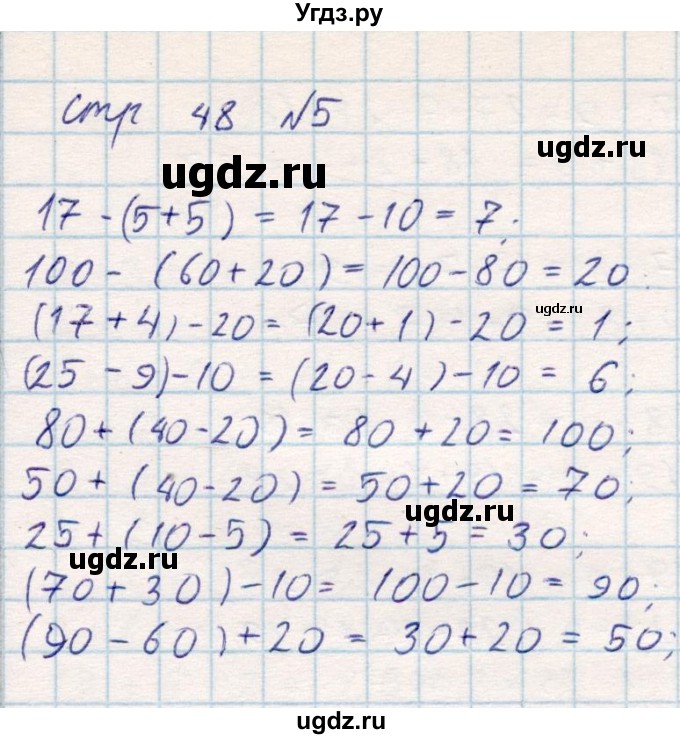 Угдз.ру
стр 48 №5
ugdz.ru
ugdz.ru
17 - (5+5) = 17 - 10 = 7;
100 - (60+20) = 100 - 80 = 20.
ugdz.ru
(17+4) - 20 = (20+1) - 20 = 1;
(25 - 9) - 10 = (20 - 4) - 10 = 6;
80 + (40 - 20) = 80 + 20 = 100;
50 + (40 - 20) = 50 + 20 = 70;
ugdz.ru
25 + (10 - 5) = 25 + 5 = 30;
ugdz.ru
(70 + 30) - 10 = 100 - 10 = 90;
(90 - 60) + 20 = 30 + 20 = 50;
ugdz.ru